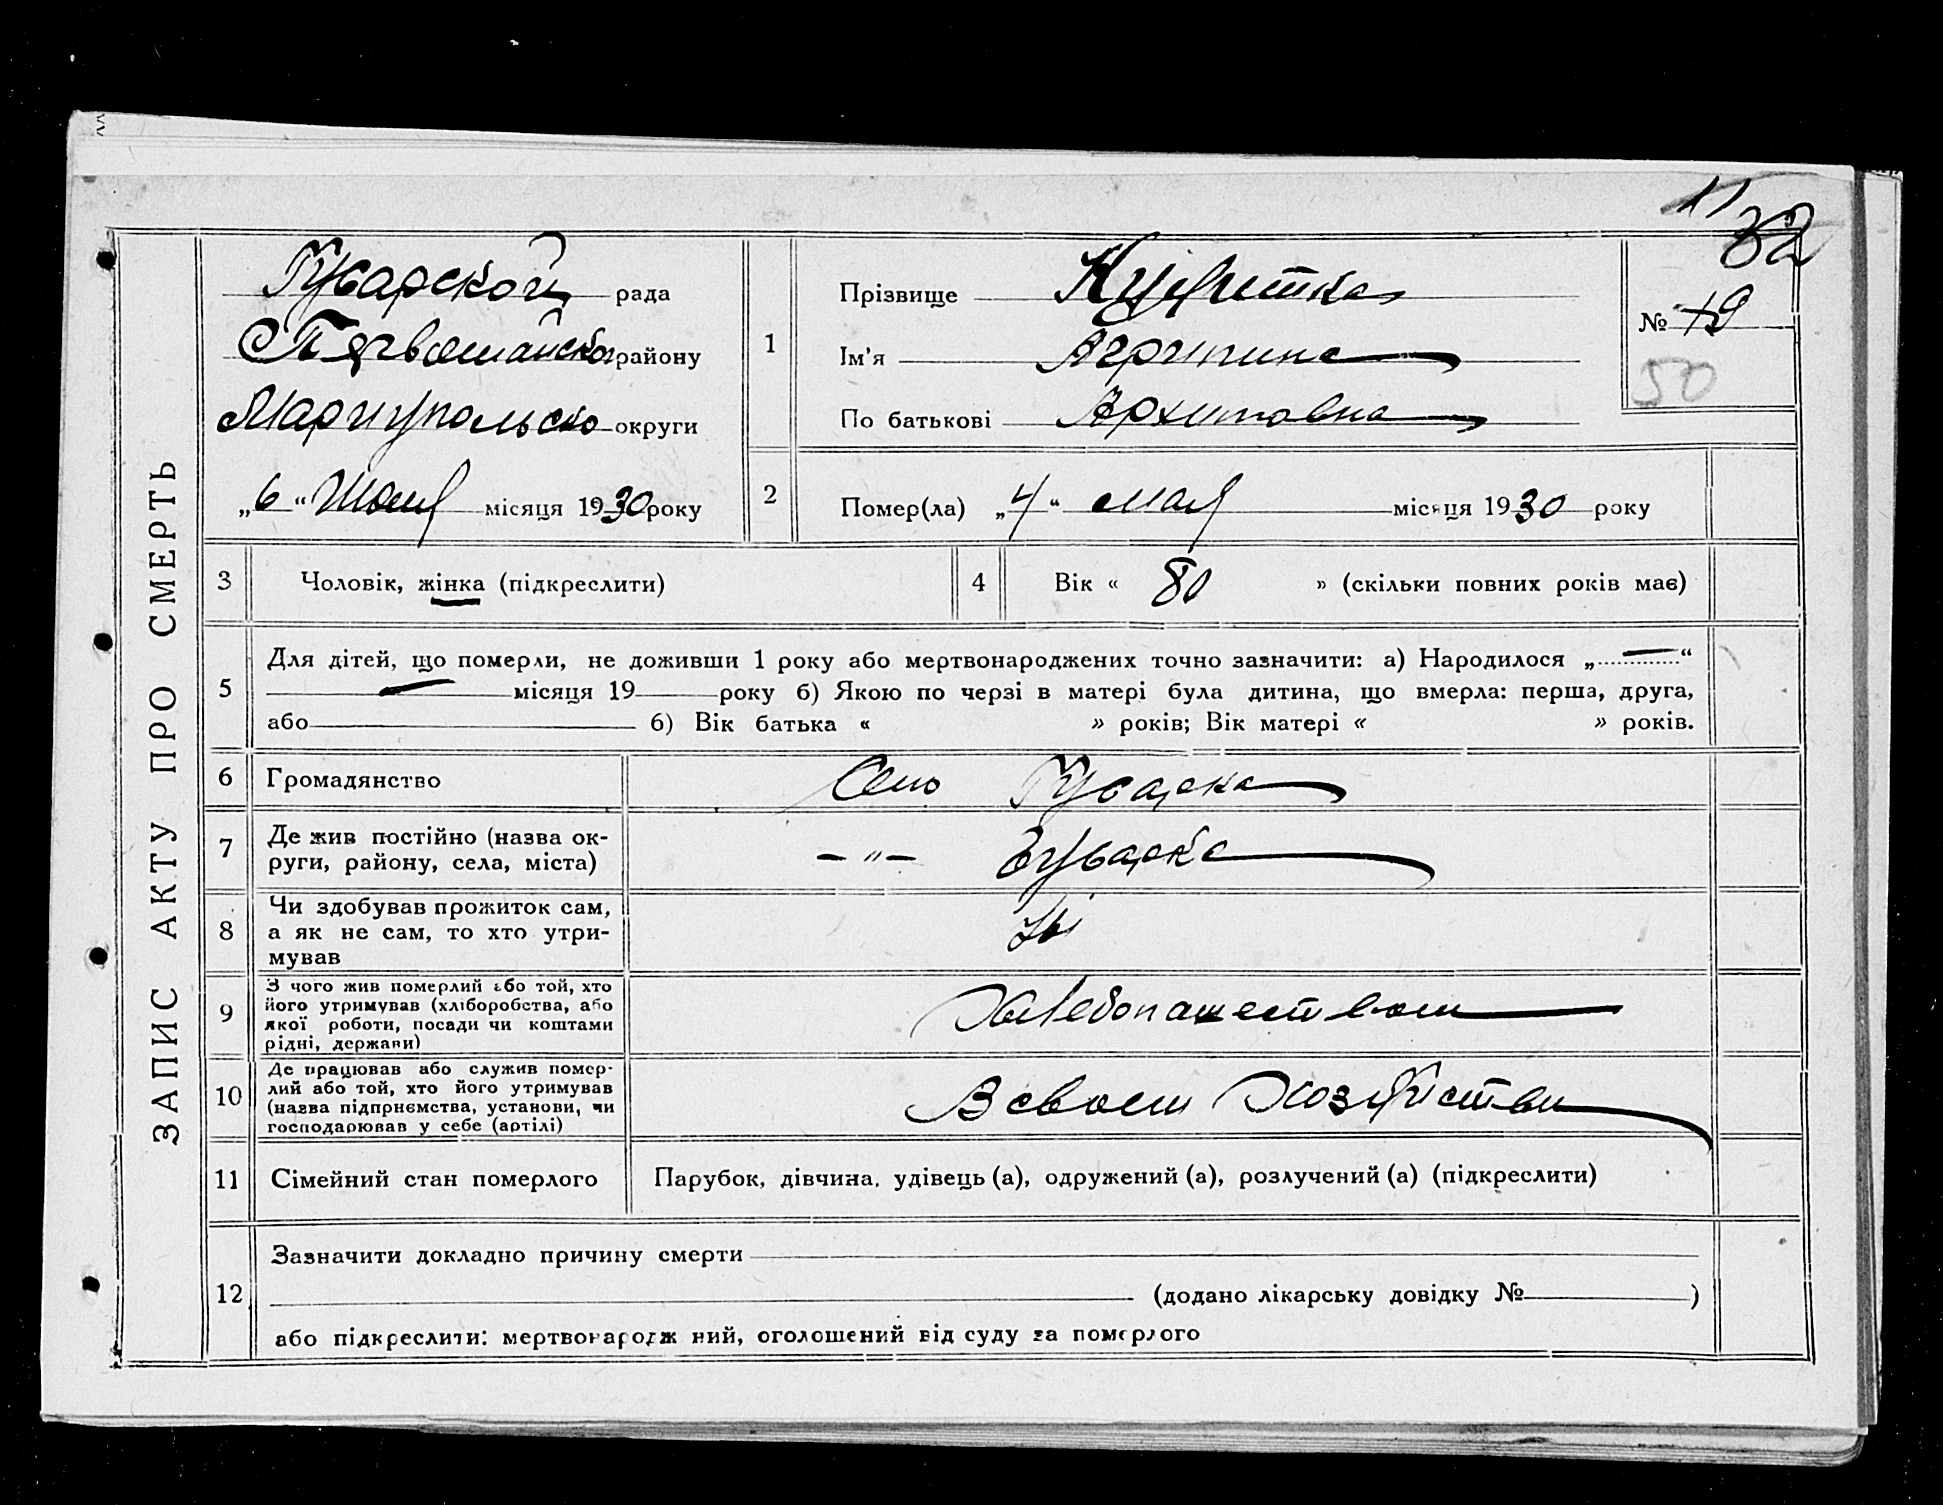 11
32
ЗАПИС АКТУ ПРО СМЕРТЬ
Гусарской рада
району
Мариупольско округи
„6“ місяця 1930 року
1
Прізвище
Ім'я Агрипина
По батькові Архиповна
№ 19
50
2
Помер(ла) „4“ мая місяця 1930 року
3 Чоловік, жінка (підкреслити)
4 Вік « 80 » (скільки повних років має)
5
Для дітей, що померли, не доживши 1 року або мертвонароджених точно зазначити: а) Народилося „ — “
— місяця 19 року б) Якою по черзі в матері була дитина, що вмерла: перша, друга,
або б) Вік батька « » років; Вік матері « » років.
6 Громадянство Село Гусарка
7 Де жив постійно (назва ок-
руги, району, села, міста)
—„— Гусарка
8 Чи здобував прожиток сам,
а як не сам, то хто утри-
мував
9 З чого жив померлий або той, хто
його утримував (хліборобства, або
якої роботи, посади чи коштами
рідні, держави)
Хлебопашеством
10 Де працював або служив помер-
лий або той, хто його утримував
(назва підприємства, установи, чи
господарював у себе (артілі)
В своем Хозяйстви
11 Сімейний стан померлого Парубок, дівчина, удівець (а), одружений (а), розлучений (а) (підкреслити)
12
Зазначити докладно причину смерти
(додано лікарську довідку № )
або підкреслити: мертвонародж ний, оголошений від суду за померлого